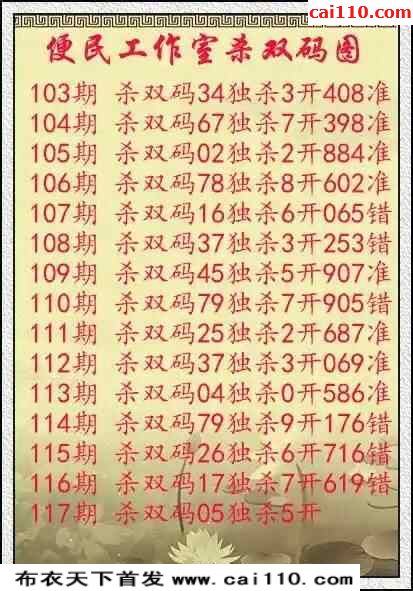 cai110.com
便民工作室杀双码图
103期 杀双码34独杀3开408准
104期 杀双码67独杀7开398准
105期 杀双码02独杀2开884准
106期 杀双码78独杀8开602准
107期 杀双码16独杀6开065错
108期 杀双码37独杀3开253错
109期 杀双码45独杀5开907准
110期 杀双码79独杀7开905错
111期 杀双码25独杀2开687准
112期 杀双码37独杀3开069准
113期 杀双码04独杀0开586准
114期 杀双码79独杀9开176错
115期 杀双码26独杀6开716错
116期 杀双码17独杀7开619错
117期 杀双码05独杀5开
布衣天下首发 www.cai110.com